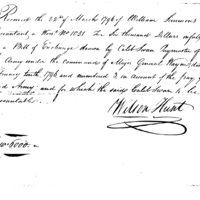 Received the 22d of March 1796 of William Simmons
accountant, a War.t No. 1081. for Six thousand Dollars in full
a Bill of Exchange drawn by Caleb Swan Paymaster of
Army under the command of Major General Wayne, da
tenth 1796 and numbered 2 on account of the pay
Army and for which the said Caleb Swan is to be
accountable.
Wilson Hunt
6000